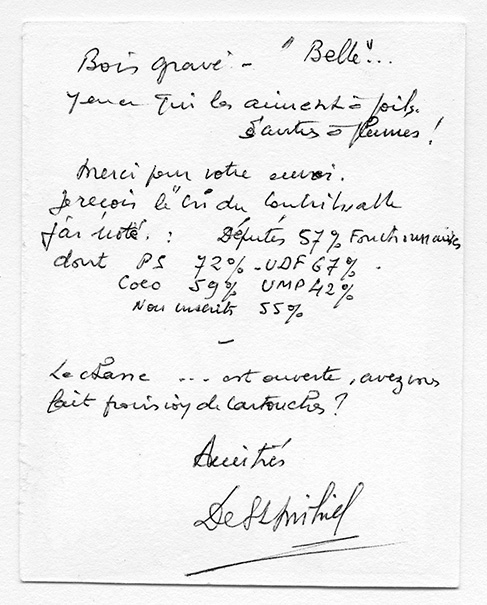 Bois gravé - "Belle"...
Y en a qui les aiment à poils
d'autres à plumes !
Merci pour votre envoi.
Je reçois le "Cri du Contribuable"
J'ai noté : Députés 57% Fonctionnaires
dont PS 72% - UDF 67% -
Coco 59% UMP 42%
Non inscrits 55%
-
La chasse ... est ouverte, avez vous
fait provision de cartouches ?
Amitiés